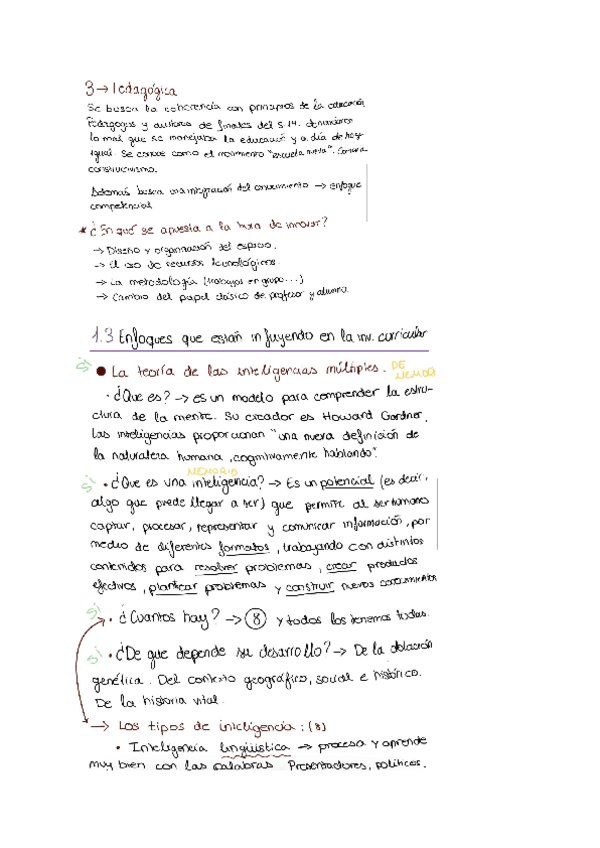 3 → Pedagógica
Se busca la coherencia con principios de la educación
Pedagogos y autores de finales del s.19. denunciaron
lo mal que se manejaba la educación y a día de hoy
igual. Se conoce como el movimiento "escuela nueva".
constructivismo.
Además busca una integración del conocimiento → enfoque
competencial
* ¿En qué se apuesta a la hora de innovar?
→ Diseño y organización del espacio.
→ El uso de recursos tecnológicos.
→ La metodología (trabajos en grupo...)
→ Cambio del papel clásico de profesor y alumno
1.3 Enfoques que están influyendo en la inv. curricular
Si
● La teoría de las inteligencias múltiples. DE MEMORI
· ¿Que es? → es un modelo para comprender la estru-
ctura de la mente. Su creador es Howard Gardner.
Las inteligencias proporcionan "una nueva definición de
la naturaleza humana, cognitivamente hablando".
MEMORIA
Si · ¿Que es una inteligencia? → Es un potencial (es decir,
algo que puede llegar a ser) que permite al ser humano
captar, procesar, representar y comunicar información, por
medio de diferentes formatos, trabajando con distintos
contenidos para resolver problemas, crear productos
efectivos, plantear problemas y construir nuevos conocimientos
Si · ¿Cuantos hay? → 8 y todos los tenemos todas.
Si · ¿De que depende su desarrollo? → De la dotación
genética. Del contexto geográfico, social e histórico.
De la historia vital.
→ Los tipos de inteligencia: (8)
· Inteligencia lingüística → procesa y aprende
muy bien con las palabras Presentadores, políticos.